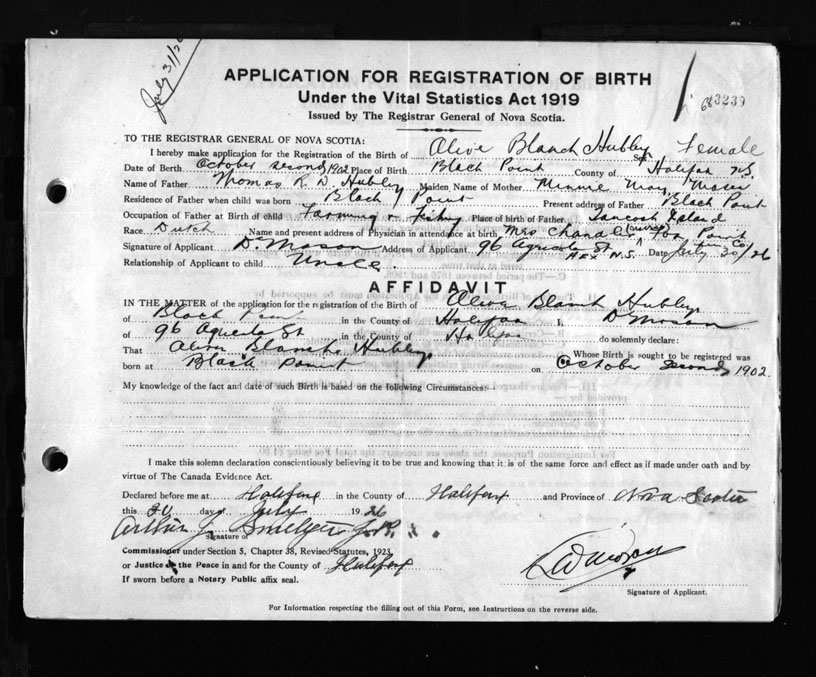 July 31/26
APPLICATION FOR REGISTRATION OF BIRTH
Under the Vital Statistics Act 1919
Issued by The Registrar General of Nova Scotia.
683239
TO THE REGISTRAR GENERAL OF NOVA SCOTIA:
I hereby make application for the Registration of the Birth of Olive Blanch Hubley Sex Female
Date of Birth October second 1902 Place of Birth Black Point County of Halifax N.S.
Name of Father Thomas R. D. Hubley Maiden Name of Mother Minnie May Mason
Residence of Father when child was born Black Point Present address of Father Black Point
Occupation of Father at Birth of child Farming & fishing Place of birth of Father Tancook Island
Race Dutch Name and present address of Physician in attendance at birth Mrs Chandler (nurse) Fox Point
Signature of Applicant D. Mason Address of Applicant 96 Agricola St Hfx N.S. Date July 30/26
Relationship of Applicant to child Uncle.
AFFIDAVIT
IN THE MATTER of the application for the registration of the Birth of Olive Blanch Hubley
of Black Point in the County of Halifax I, D Mason
of 96 Agricola St in the County of Halifax do solemnly declare:
That Olive Blanch Hubley Whose Birth is sought to be registered was
born at Black Point on October Second 1902.
My knowledge of the fact and date of such Birth is based on the following Circumstances:
I make this solemn declaration conscientiously believing it to be true and knowing that it is of the same force and effect as if made under oath and by
virtue of The Canada Evidence Act.
Declared before me at Halifax in the County of Halifax and Province of Nova Scotia
this 30 day of July 1926
Arthur J. J.P.
Signature of
Commissioner under Section 5, Chapter 38, Revised Statutes, 1923,
or Justice of the Peace in and for the County of Halifax
If sworn before a Notary Public affix seal.
D Mason
Signature of Applicant.
For Information respecting the filling out of this Form, see Instructions on the reverse side.